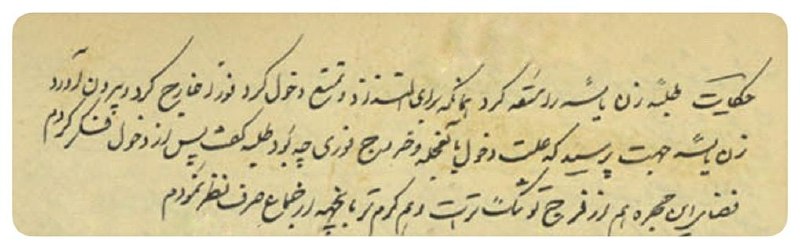 حکایت طلبهٔ زن یائسه را متعه کرد همانکه برای التذذ و تمتع دخول کرد فوراً خارج کرد و بیرون آورد
زن یائسه جهت پرسید که علت دخول با لعجله و خروج فوری چه بُود طلبه گفت پس از دخول فکر کردم
فضای این حجره ام از فرج تو تنگ تر است و هم گرم تر بانجهة از جماع صرف نظر نمودم